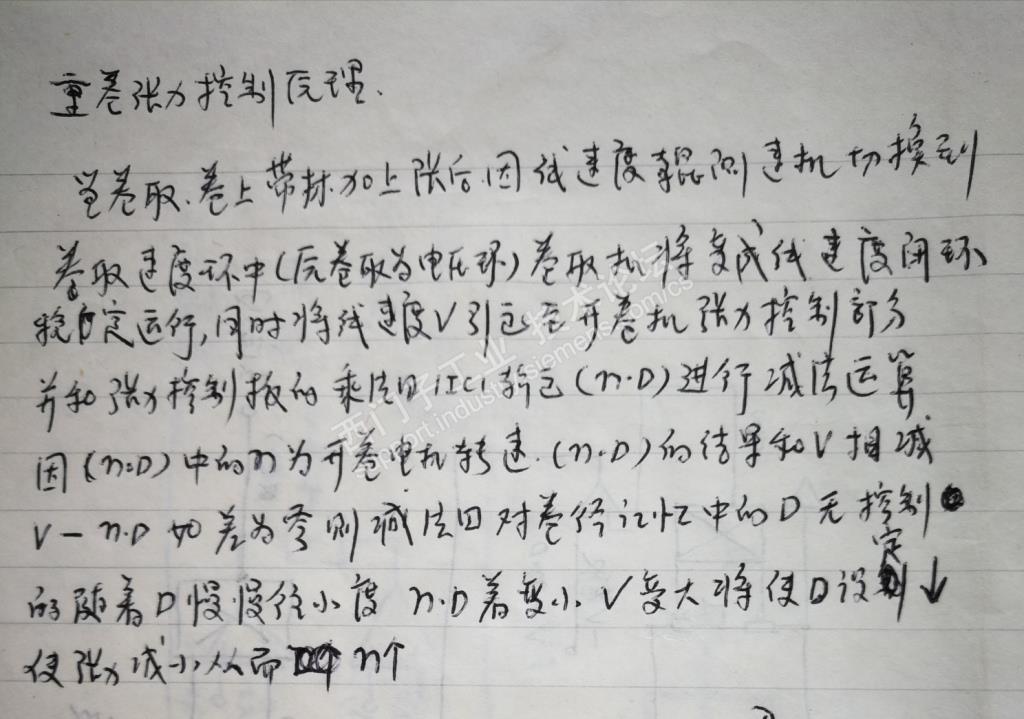 重卷张力控制原理.
当卷取.卷上带材.加上张后.因线速度辊测速机切换到
卷取速度环中(原卷取为电压环)卷取机将变成线速度闭环
稳定运行,同时将线速度V引至开卷机张力控制部分
并和张力控制板的乘法 输出(n·D)进行减法运算
因(n·D)中的n为开卷电机转速.(n·D)的结果和V相减
V-n·D 如差为零则减法 对卷径记忆中的D无控制
的随着D慢慢往小度 n·D着变小 V变大将使D设定↓
使张力减小从而 n个
西门子工业 技术论坛
support.industry.siemens.com/cs